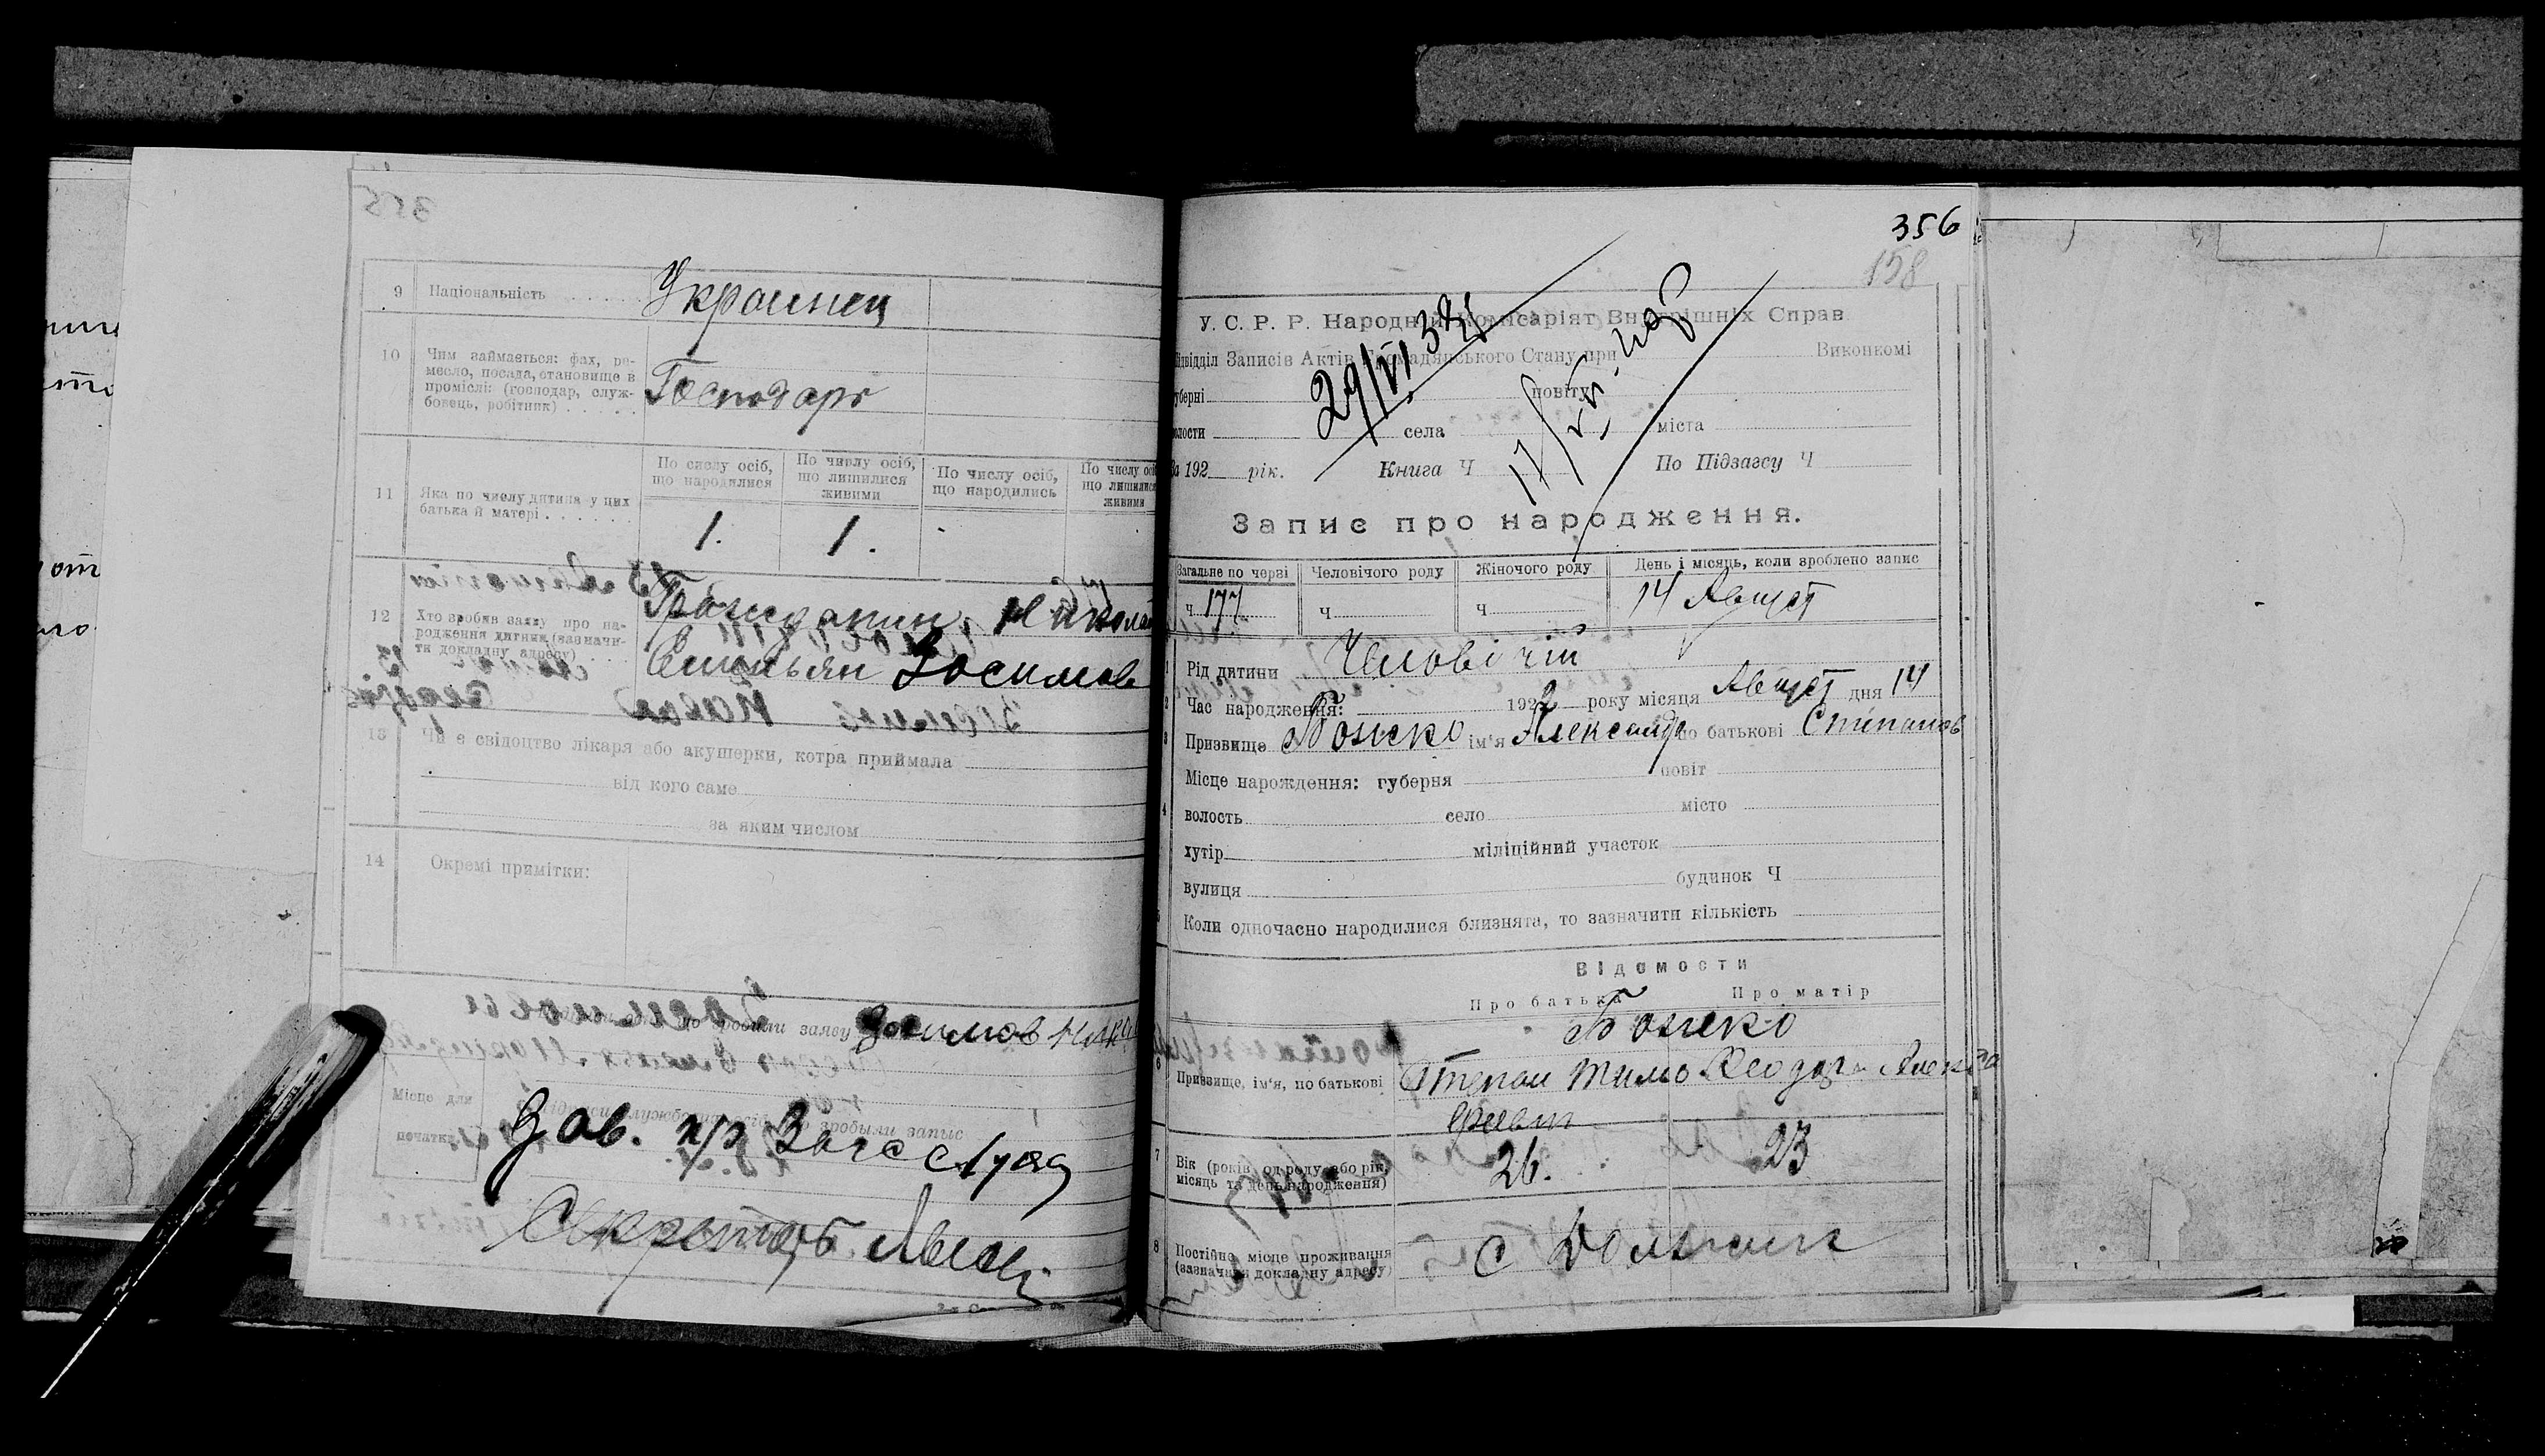 9 Національність Украинец
10 Чим займається: фах, ре-
месло, посада, становище в
промислі: (господар, служ-
бовець, робітник) Господарь
11 Яка по числу дитина у цих
батька й матері
По числу осіб,
що народилися
По числу осіб,
що лишилися
живими
По числу осіб,
що народились
По числу осіб
що лишилися
живими
1. 1.
12 Хто зробив заяву про на-
родження дитини (зазначи-
ти докладну адресу)
Гражданин
Зосимов
13 Чи є свідоцтво лікаря або акушерки, котра приймала
від кого саме
за яким числом
14 Окремі примітки:
зробили заяву Зосимов
Місце для
початки
зробыли запыс
Зав. п/р Загс
Секретарь
356
158
У. С. Р. Р. Народний Комісаріят Внутрішніх Справ
ідвідділ Записів Актів Громадянського Стану при Виконкомі
уберні повіту
олости села міста
За 192 рік. Книга Ч По Підзагсу Ч
29/VI 38
Запис про народження.
Загальне по черзі Человічого роду Жіночого роду День і місяць, коли зроблено запис
Ч 177 Ч Ч 14 Август
1 Рід дитини Человічій
2 Час народження: 1922 року місяця Август дня 14
3 Призвище Божко ім'я Александр по батькові Степанов
Місце нарождення: губерня повіт
4 волость село місто
хутір міліційний участок
вулиця будинок Ч
5 Коли одночасно народилися близнята, то зазначити кількість
Відомости
Про батька Про матір
Божко
6 Призвище, ім'я, по батькові Степан Тимо
феевич
7 Вік (років од роду або рік,
місяць та день народження) 26. 23
8 Постійне місце проживання
(зазначити докладну адресу) с